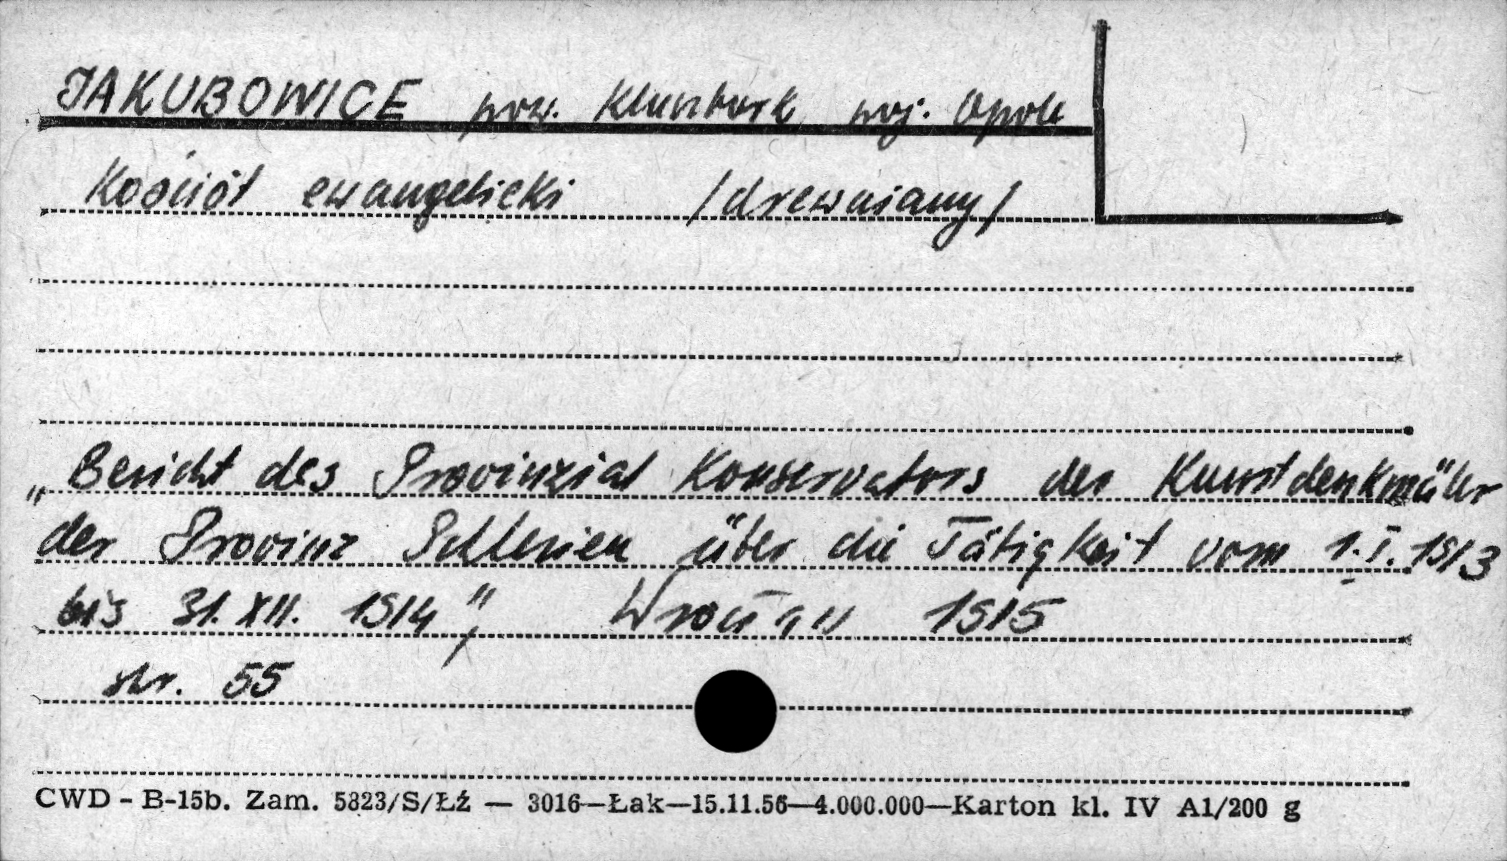 JAKUBOWICE pow. Kluczbork woj. Opole
Kościół ewangelicki /drewniany/
„Bericht des Provinzial Konservators der Kunstdenkmäler
der Provinz Schlesien über die Tätigkeit vom 1.I.1913
bis 31.XII. 1914", Wrocław 1915
str. 55
CWD - B-15b. Zam. 5323/S/Łź — 3016—Łak—15.11.56—4.000.000—Karton kl. IV A1/200 g